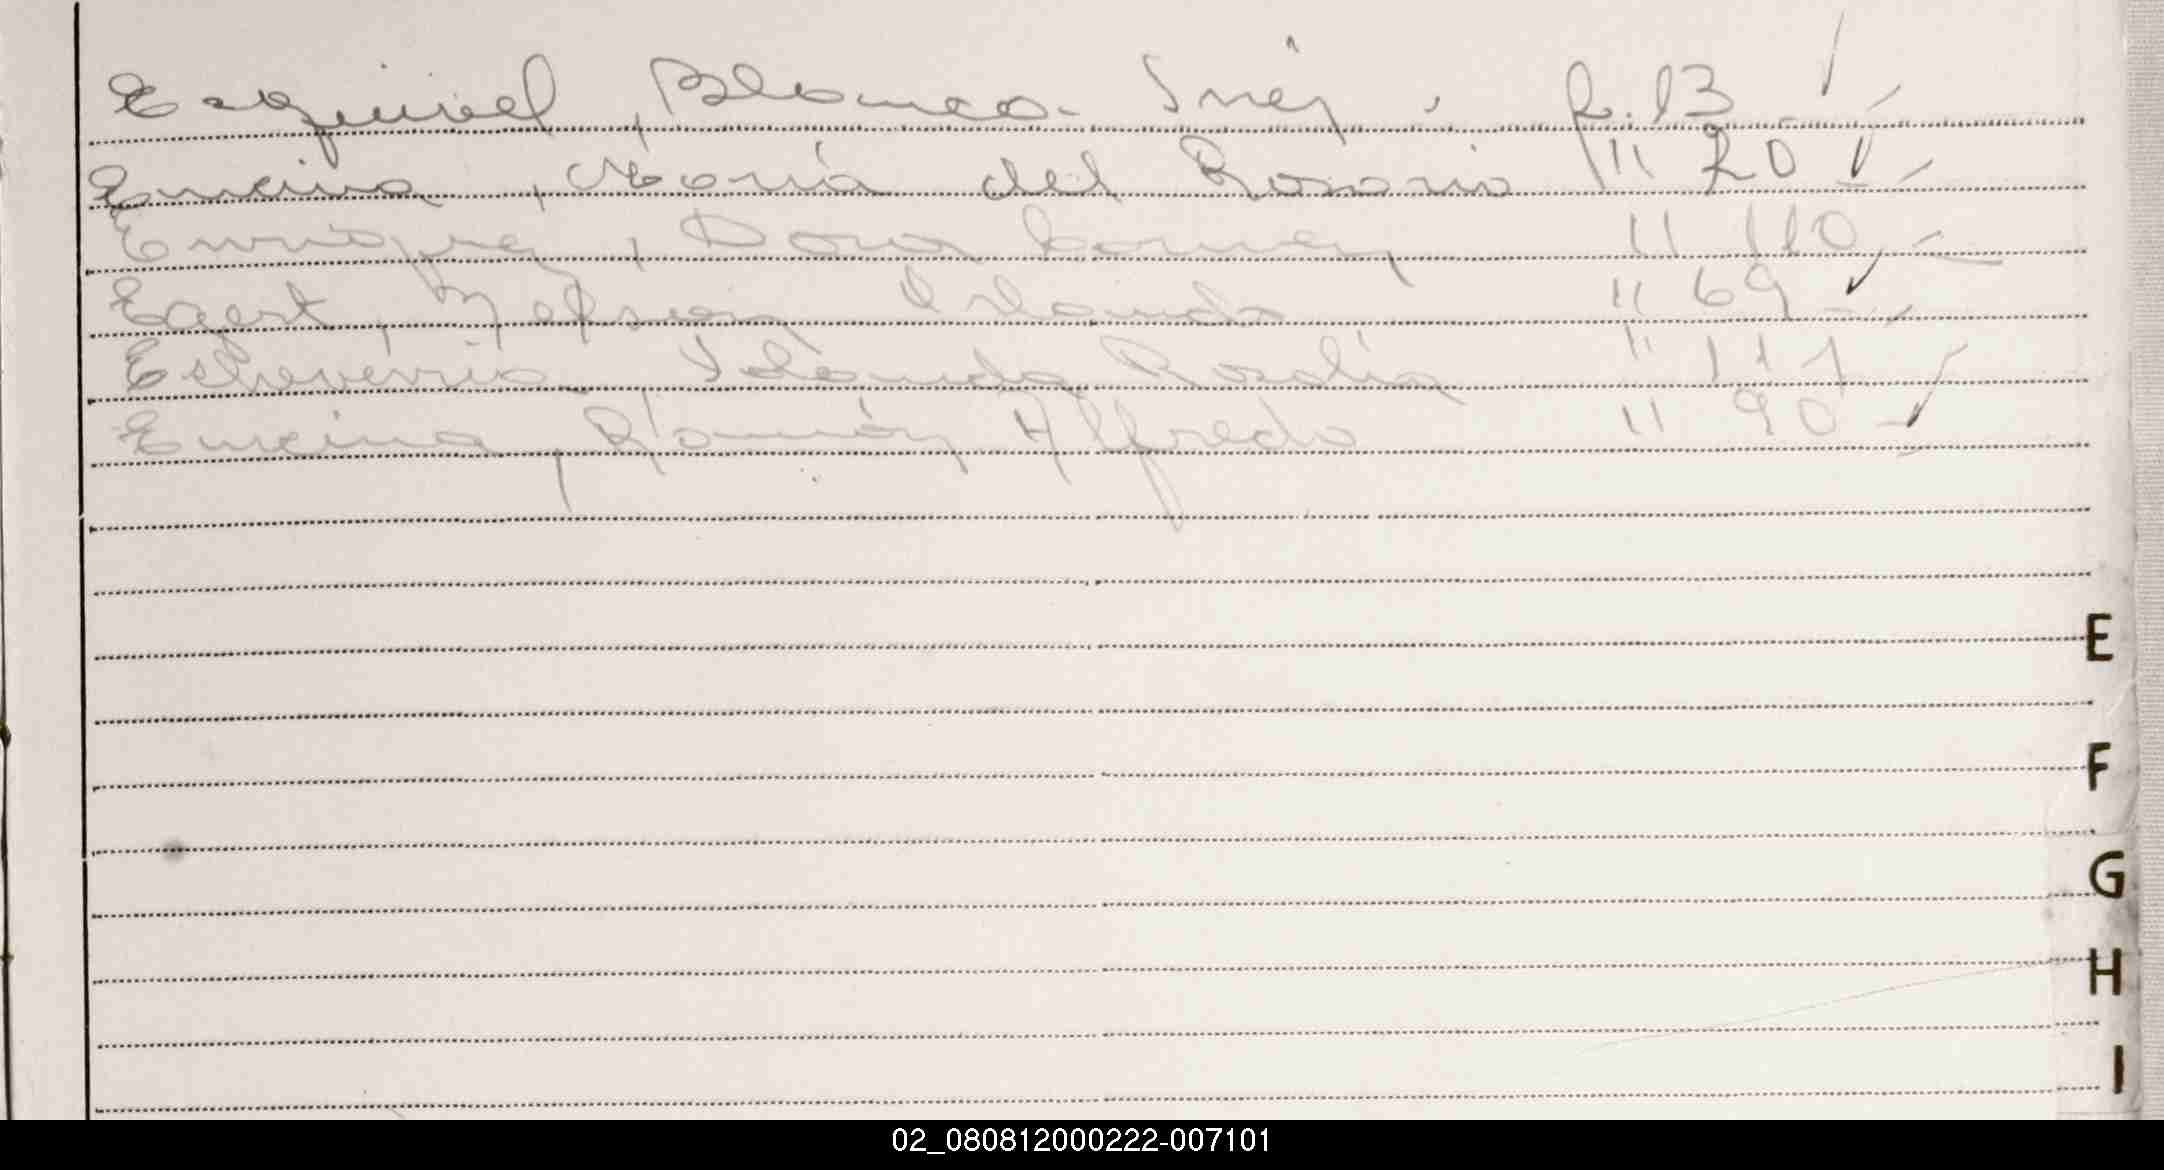 Esquivel, Blanca Inés. f. 13
Encina, María del Rosario " 20
Enriquez, Dora Carmen " 110
Egert, Nelson Orlando " 69
Echeverria Yolanda Rosalia " 111
Encina, Ramón Alfredo " 90
E
F
G
H
I
02_080812000222-007101